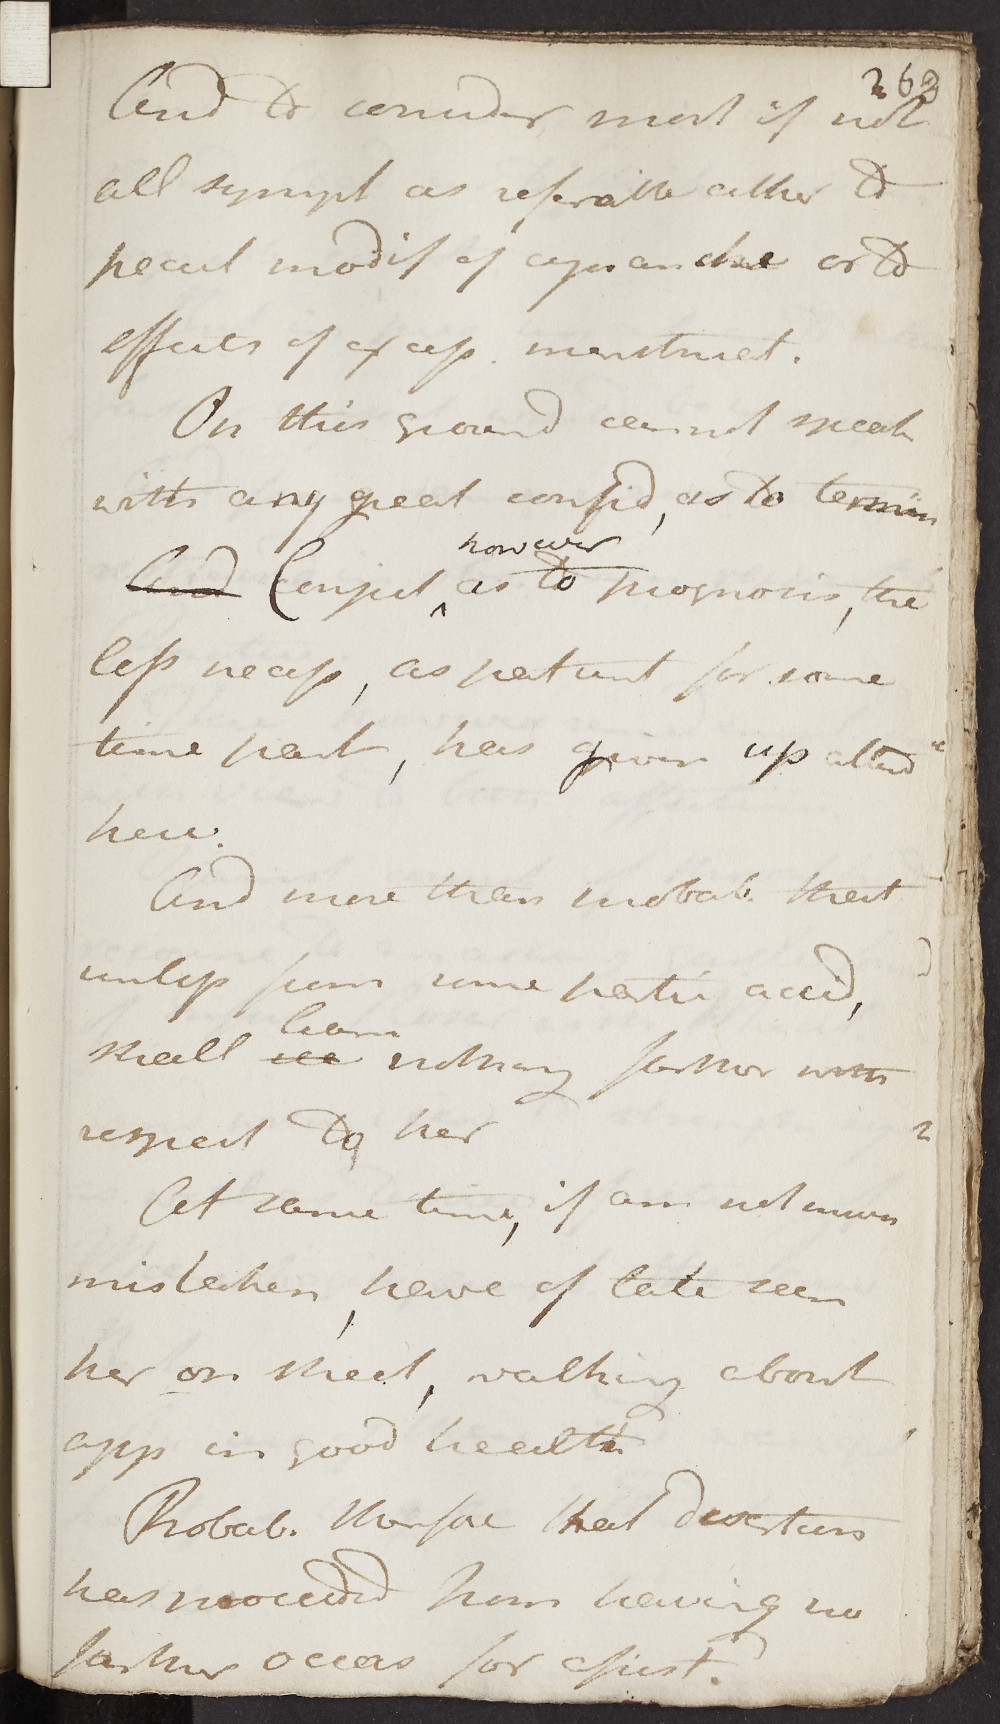 262
And to consider most if not
all sympt as referable either to
pecul modif of cynanche or to
effects of excess. menstruat.
On this ground cannot speak
with any great confid, as to termin
And Conject, however as to prognosis, the
less necess, as patient for some
time past, has given up attend^ce
here.
And more than probab. that
unless from some partic accid,
shall see learn nothing farther with
respect to her
At same time, if am not much
mistaken, have of late seen
her on street, walking about
app in good health
Probab. therfore that desertion
has proceeded from having no
farther occas for assist.